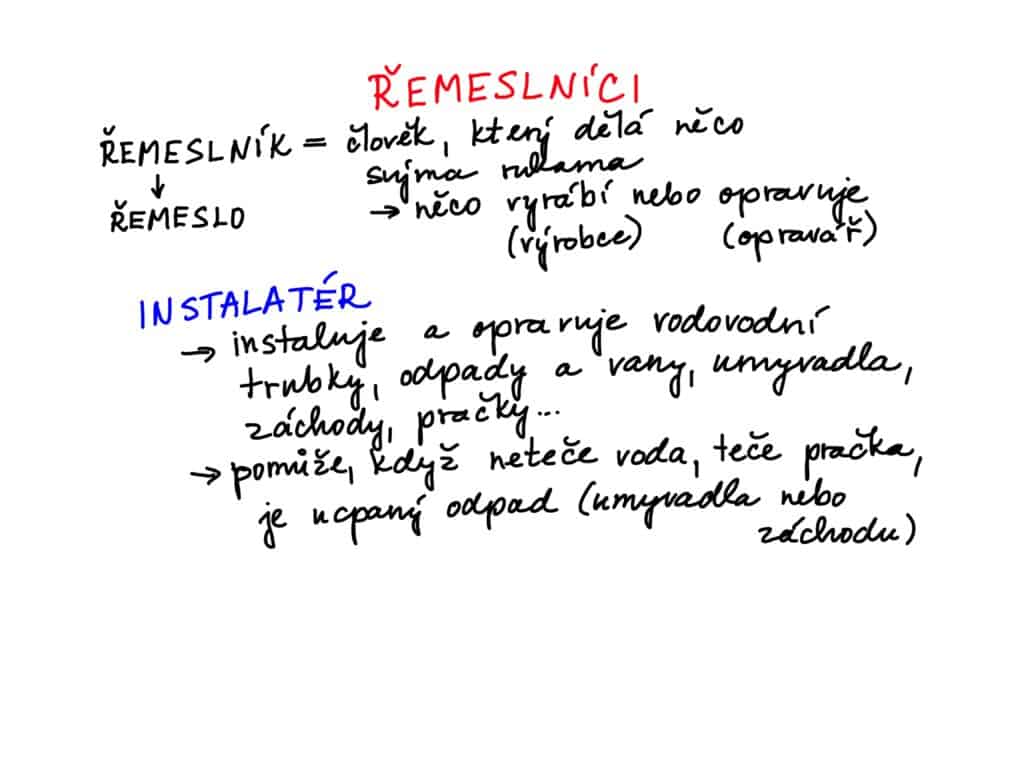 ŘEMESLNÍCI
ŘEMESLNÍK = člověk, který dělá něco
svýma rukama
↓
ŘEMESLO
→ něco vyrábí nebo opravuje
(výrobce) (opravář)
INSTALATÉR
→ instaluje a opravuje vodovodní
trubky, odpady a vany, umyvadla,
záchody, pračky...
→ pomůže, když neteče voda, teče pračka,
je ucpaný odpad (umyvadla nebo
záchodu)